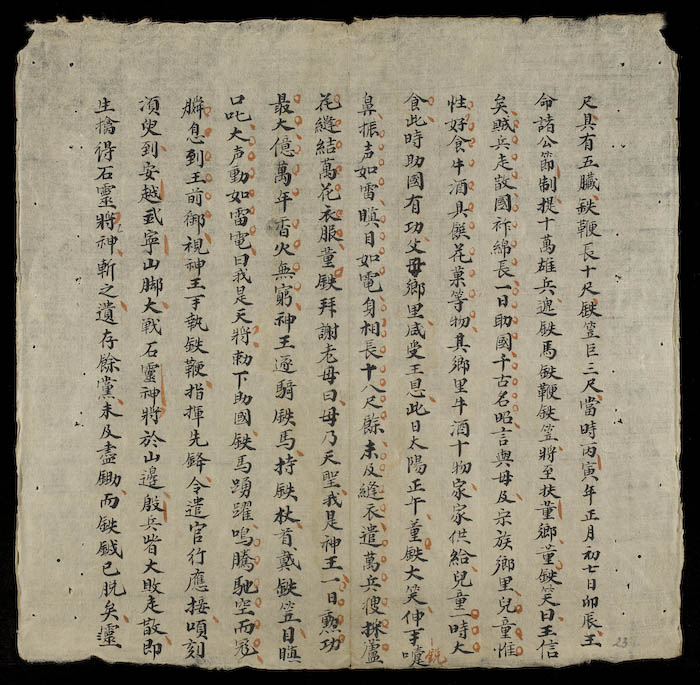 尺具有五臓鉄鞭長十尺鉄笠巨三尺當時丙寅年正月初七日卯辰王
命諸公節制提十萬雄兵遞鉄馬鉄鞭鉄笠將至扶董鄉董鉄笑曰王信
矣賊兵走散國祚綿長一日助國千古名昭言與母及宗族鄉里兒童惟
性好食牛酒具饌花菓等物其鄉里牛酒十物家家供給兒童一時大
食此時助國有功父母鄉里咸受王恩此日太陽正午董鉄大笑伸手嚏
鼻振声如雷瞋目如電身相長十八尺餘未及縫衣遣萬兵彼採蘆
花縫結萬花衣服董鉄拜謝老母曰母乃天聖我是神王一日勲功
最大億萬年香火無窮神王遂騎鉄馬持鉄杖首戴鉄笠目瞋
口叱大声動如雷電曰我是天將勅下助國鉄馬踴躍鳴騰馳空而飛
瞬息到王前御視神王手執鉄鞭指揮先鋒令遣官行應接頃刻
須臾到安越武寧山脚大戰石靈神將於山邊殷兵皆大敗走散即
生擒得石靈將神斬之遺存餘黨未及盡鋤而鉄鉞已脱矣靈
23